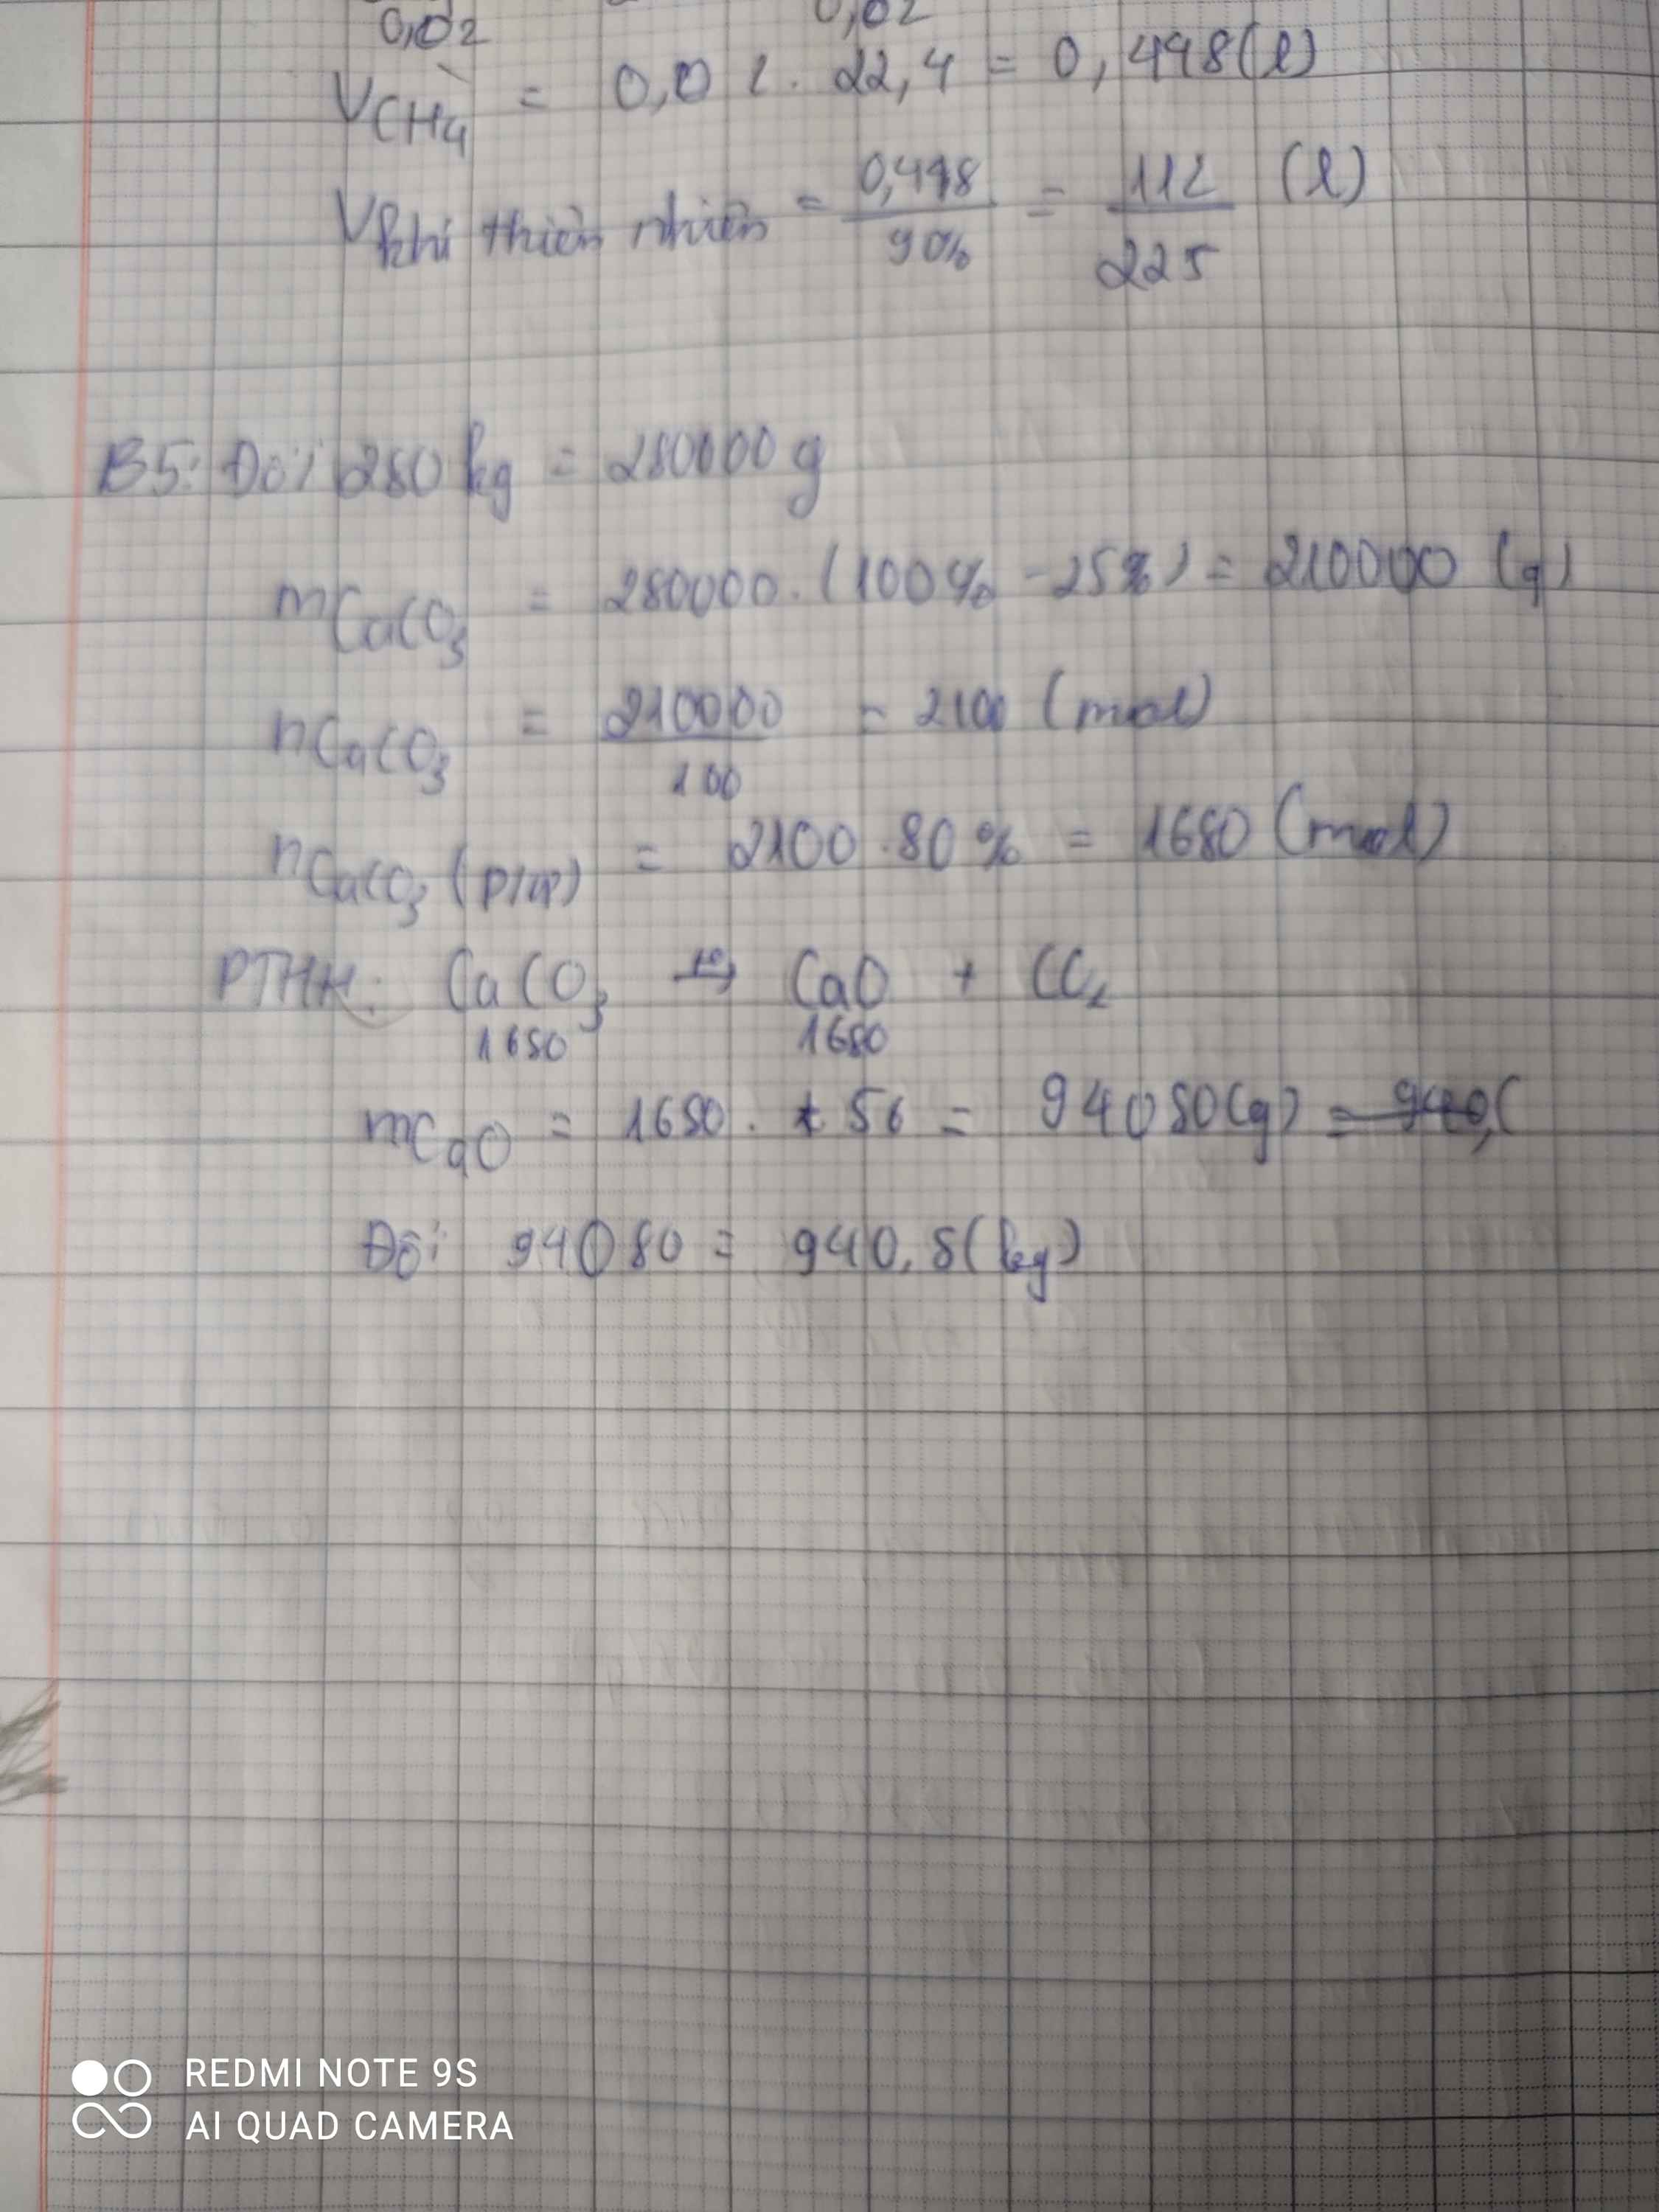 0,02 0,02
VCH4 = 0,02 . 22,4 = 0,448(l)
Vkhí thiên nhiên = 0,448/90% = 112/225 (l)
B5: Đổi 280 kg = 280000 g
mCaCO3 = 280000 . (100% - 25%) = 210000 (g)
nCaCO3 = 210000/100 = 2100 (mol)
nCaCO3 (pứ) = 2100 . 80% = 1680 (mol)
PTHH: CaCO3 t°→ CaO + CO2
1680 1680
mCaO = 1680 . 56 = 94080(g) = 940,(
Đổi 94080 = 940,8(kg)
REDMI NOTE 9S
AI QUAD CAMERA